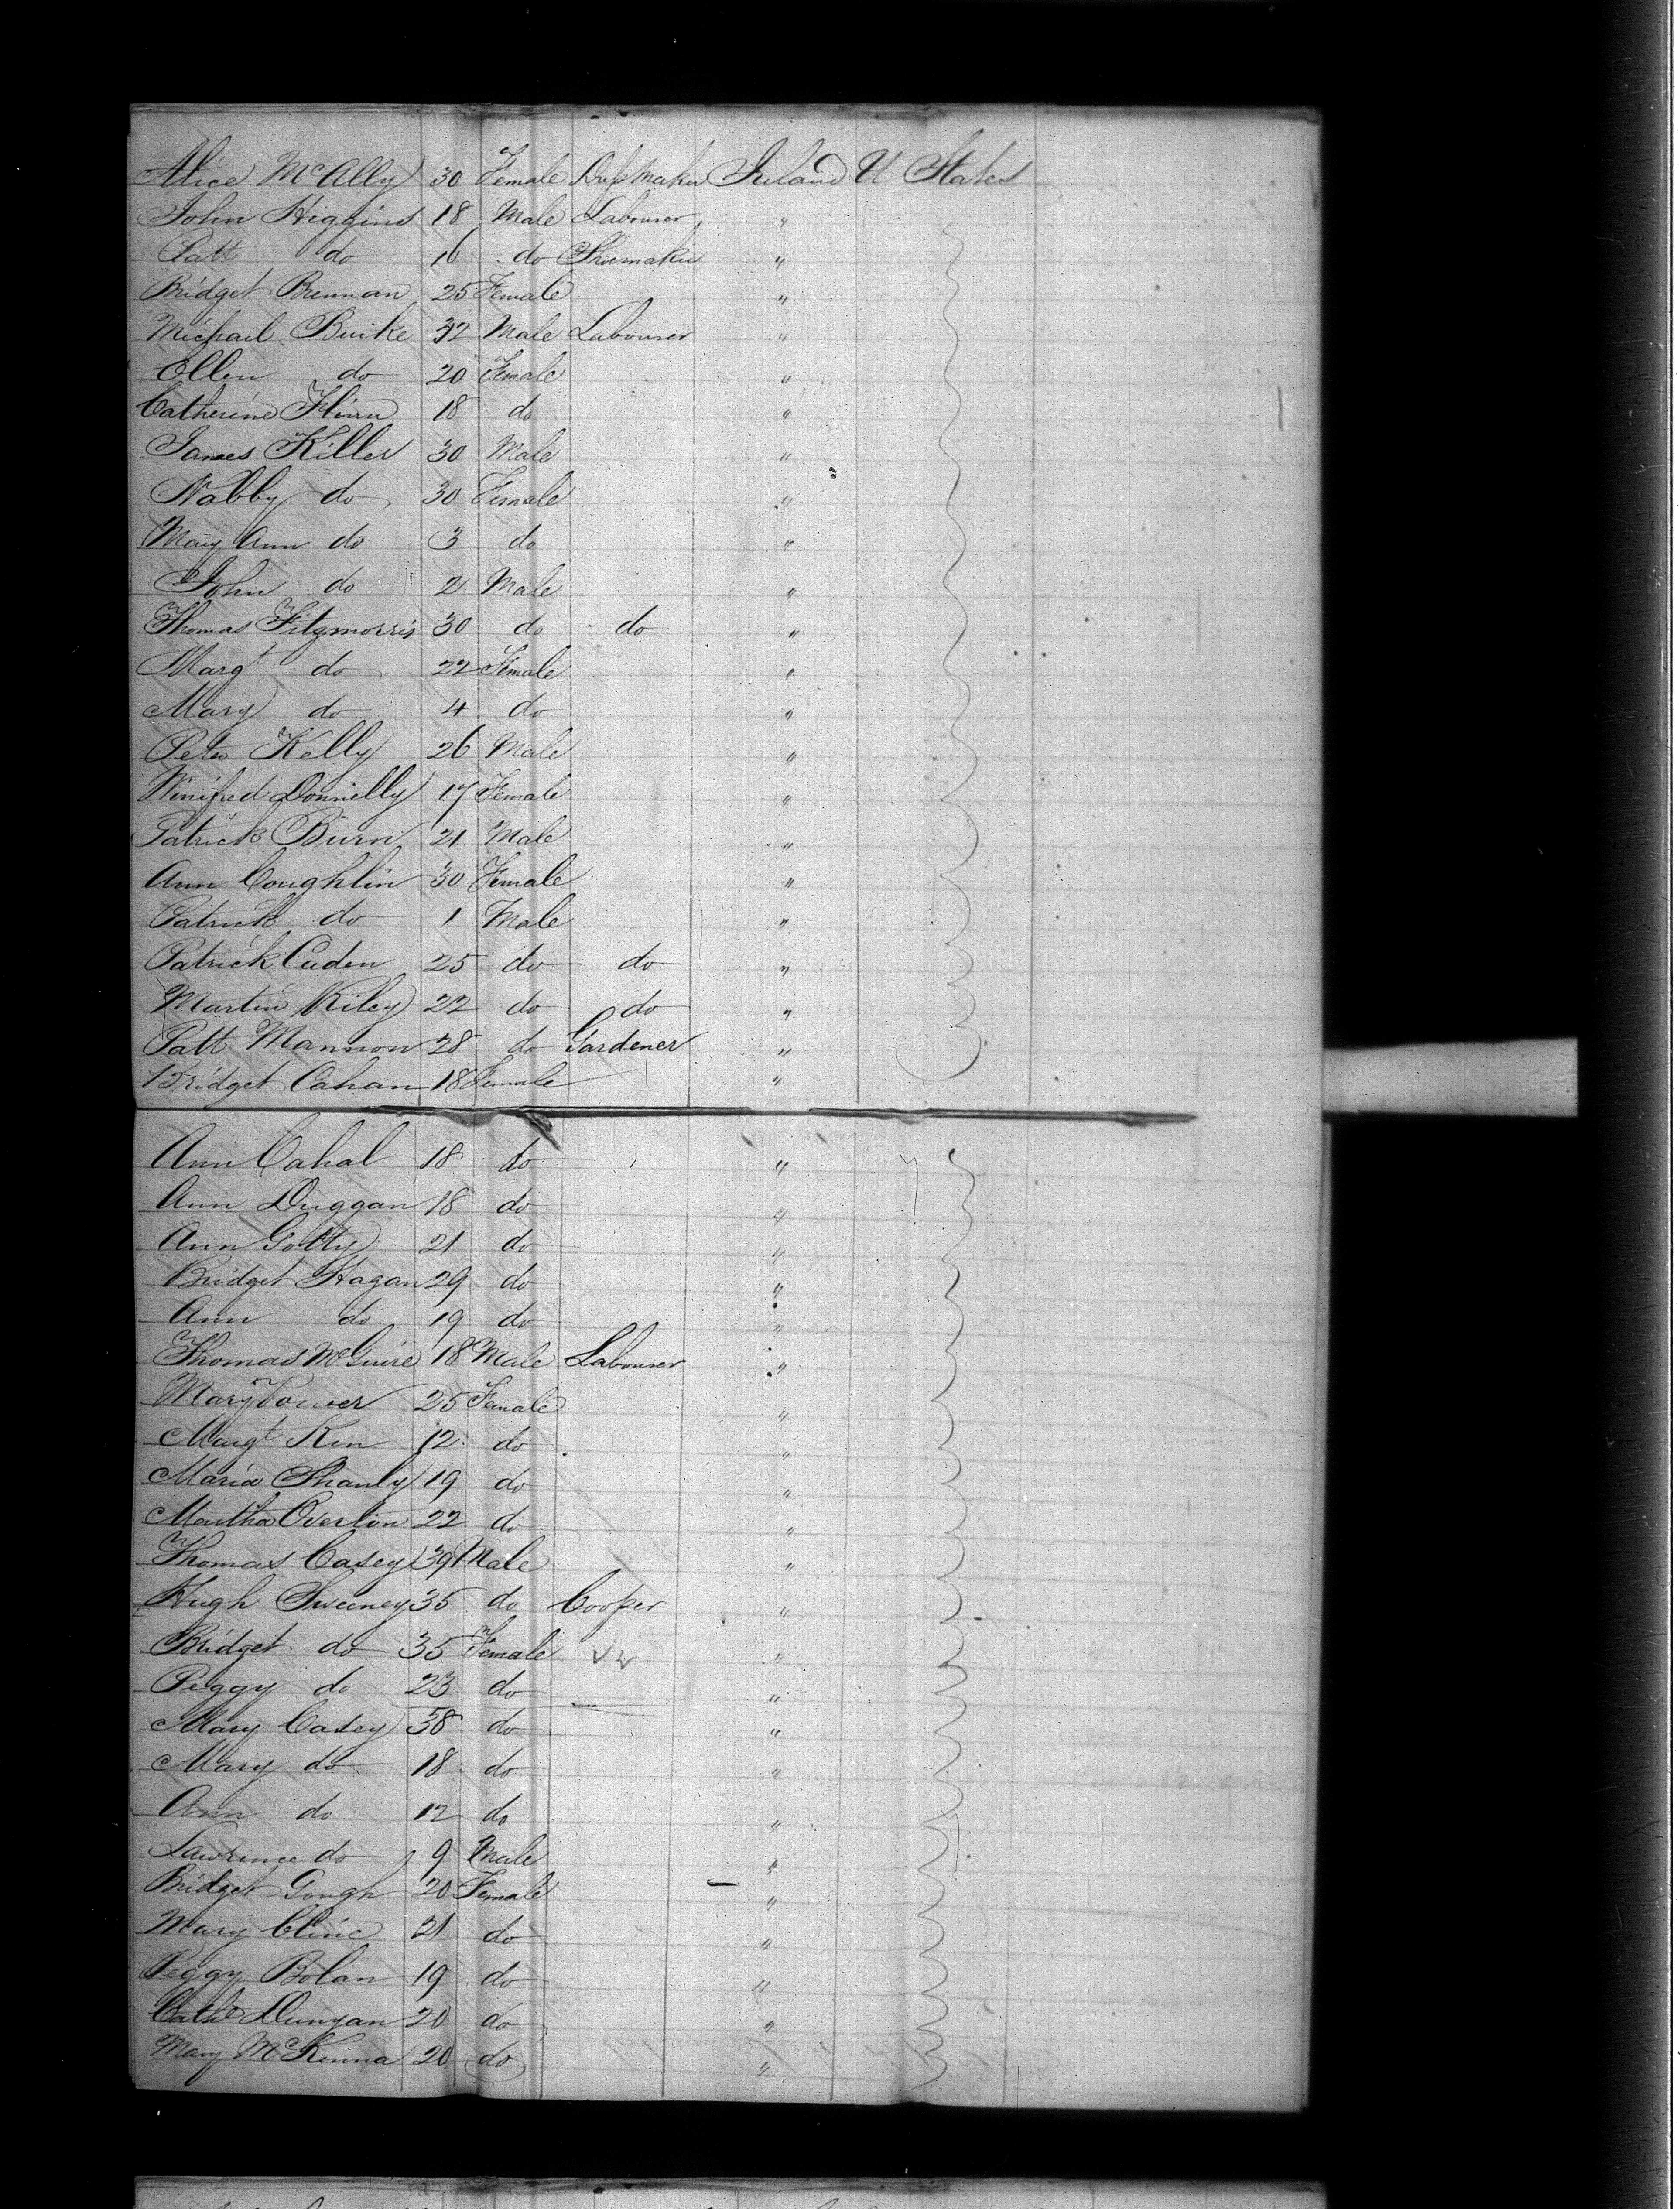 Alice McAlly 30 Female Dressmaker Ireland U States
John Higgins 18 Male Labourer "
Patt do 16 do Shoemaker "
Bridget Brennan 25 Female "
Michael Burke 32 Male Labourer "
Ellen do 20 Female "
Catherine 18 do "
James Killer 30 Male "
Nabby do 30 Female "
Mary Ann do 3 do "
John do 2 Male "
Thomas Fitzmorris 30 do do "
Margt do 22 Female "
Mary do 4 do "
Peter Kelly 26 Male "
Winifred Donnilly 17 Female "
Patrick Burn 21 Male "
Ann Coughlin 30 Female "
Patrick do 1 Male "
Patrick Caden 25 do do "
Martin Kiley 22 do do "
Patt Mannon 28 do Gardener "
Bridget Cahan 18 Female "
Ann Cahal 18 do "
Ann Duggan 18 do "
Ann Gotty 21 do "
Bridget Hagan 29 do "
Ann do 19 do "
Thomas McGuire 18 Male Labourer "
Mary Power 25 Female "
Margt 12 do "
Maria Shanly 19 do "
Martha Overton 22 do "
Thomas Casey 39 Male "
Hugh Sweeney 35 do Cooper "
Bridget do 35 Female "
Peggy do 23 do "
Mary Casey 38 do "
Mary do 18 do "
Ann do 12 do "
Lawrence do 9 Male "
Bridget Gough 20 Female "
Mary Cline 21 do "
Peggy Bolan 19 do "
Cathe Dungan 20 do "
Mary McKinna 20 do "